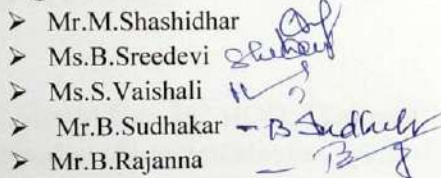 ➤ Mr.M.Shashidhar
➤ Ms.B.Sreedevi
➤ Ms.S.Vaishali
➤ Mr.B.Sudhakar - B Sudhakar
➤ Mr.B.Rajanna